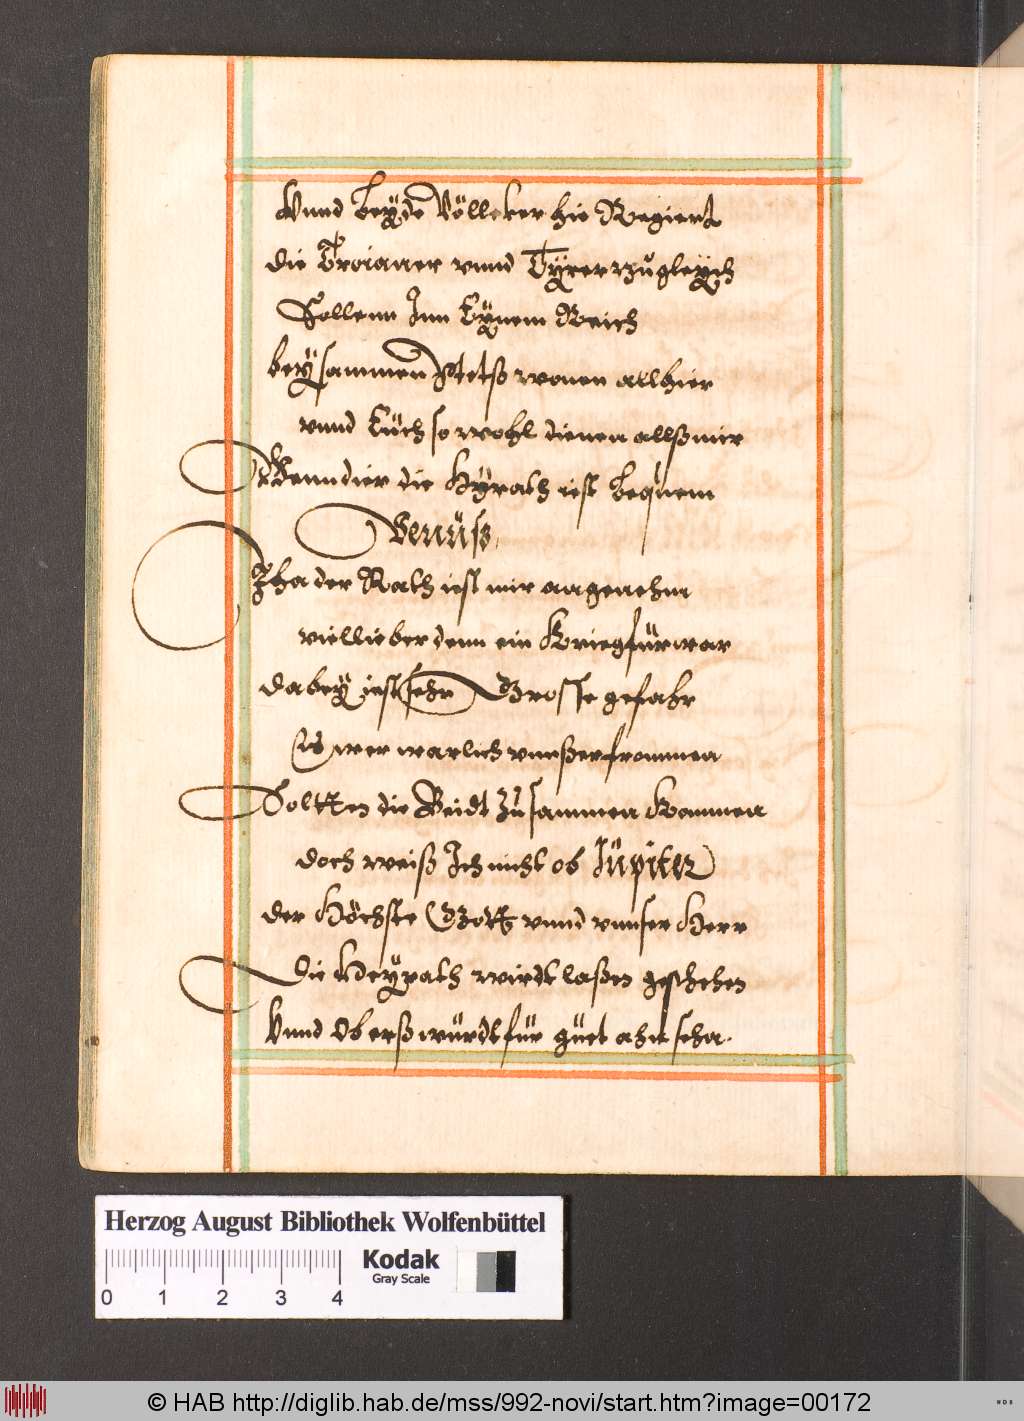 Vnnd beÿde Völlcker hie Regiert
die Troianer vnnd Tÿrer zugleÿch
Sollenn Inn Eÿnem Reich
beÿ sammen stetß wonen allhier
vnnd Eüch so wohl dienen allß mir
Wenn dier die Hÿrath ist bequem
Venüß
Jha der Rath ist mir angenehm
viel lieber denn ein Krieg fürwar
dabeÿ ist sehr Grosse gefahr
Es wer warlich vnnßer frommen
Soltten die Beidt zusammen Kommen
doch weiß Ich nicht ob Jüpiter
der Höchste Gott vnnd vnnser Herr
Die Heÿrath wirdt laßen geschehen
Vnnd ob erß würdt für güet ahn sehn.
Herzog August Bibliothek Wolfenbüttel
Kodak
Gray Scale
0 1 2 3 4
© HAB http://diglib.hab.de/mss/992-novi/start.htm?image=00172